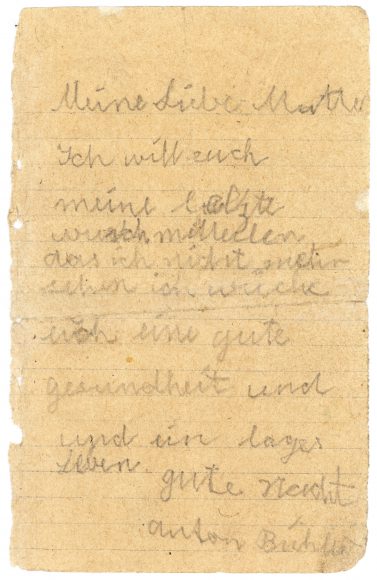 Meine Liebe Mutter
Ich will euch
meine letzte
wusch mitteilen
das ich nicht mehr
sehen ich wüche
euch eine gute
gesundheit und
und ein lages
Leben gute Nacht
anton